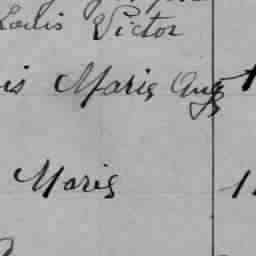 Louis Victor
is Marie Aug
Marie